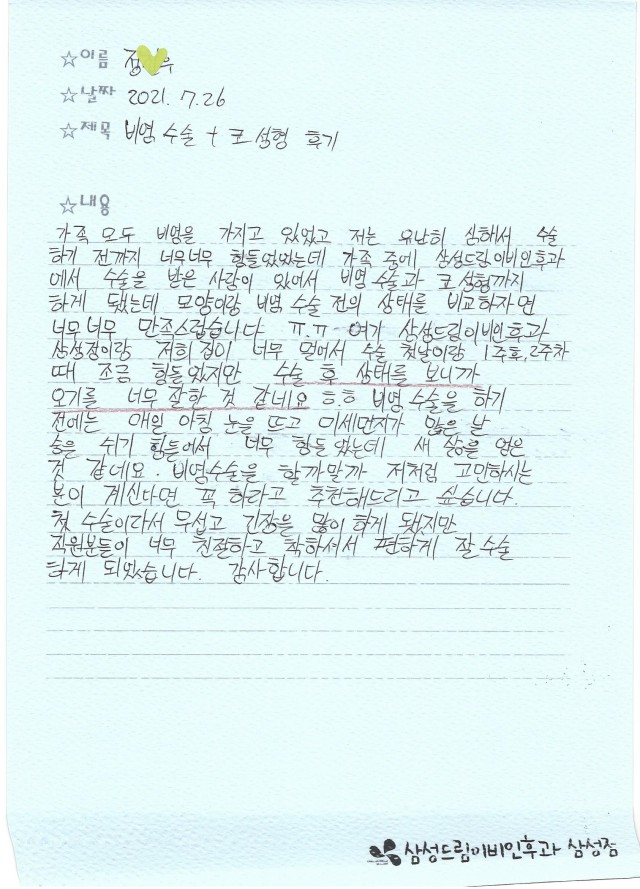 ☆이름 정 우
☆날짜 2021. 7.26
☆제목 비염 수술 + 코 성형 후기
☆내용
가족 모두 비염을 가지고 있었고 저는 유난히 심해서 수술
하기 전까지 너무너무 힘들었었는데 가족 중에 삼성드림이비인후과
에서 수술을 받은 사람이 있어서 비염 수술과 코 성형까지
하게 됐는데 모양이랑 비염 수술 전의 상태를 비교하자면
너무너무 만족스럽습니다 ㅠ.ㅠ 여기 삼성드림이비인후과
삼성점이랑 저희 집이 너무 멀어서 수술 첫날이랑 1주후, 2주차
때 조금 힘들었지만 수술 후 상태를 보니까
오기를 너무 잘한 것 같네요 ㅎ.ㅎ 비염 수술을 하기
전에는 매일 아침 눈을 뜨고 미세먼지가 많은 날
숨을 쉬기 힘들어서 너무 힘들었는데 새 삶을 얻은
것 같네요. 비염수술을 할까말까 저처럼 고민하시는
분이 계신다면 꼭 하라고 추천해드리고 싶습니다.
첫 수술이라서 무섭고 긴장을 많이 하게 됐지만
직원분들이 너무 친절하고 착하셔서 편하게 잘 수술
하게 되었습니다. 감사합니다.
삼성드림이비인후과 삼성점